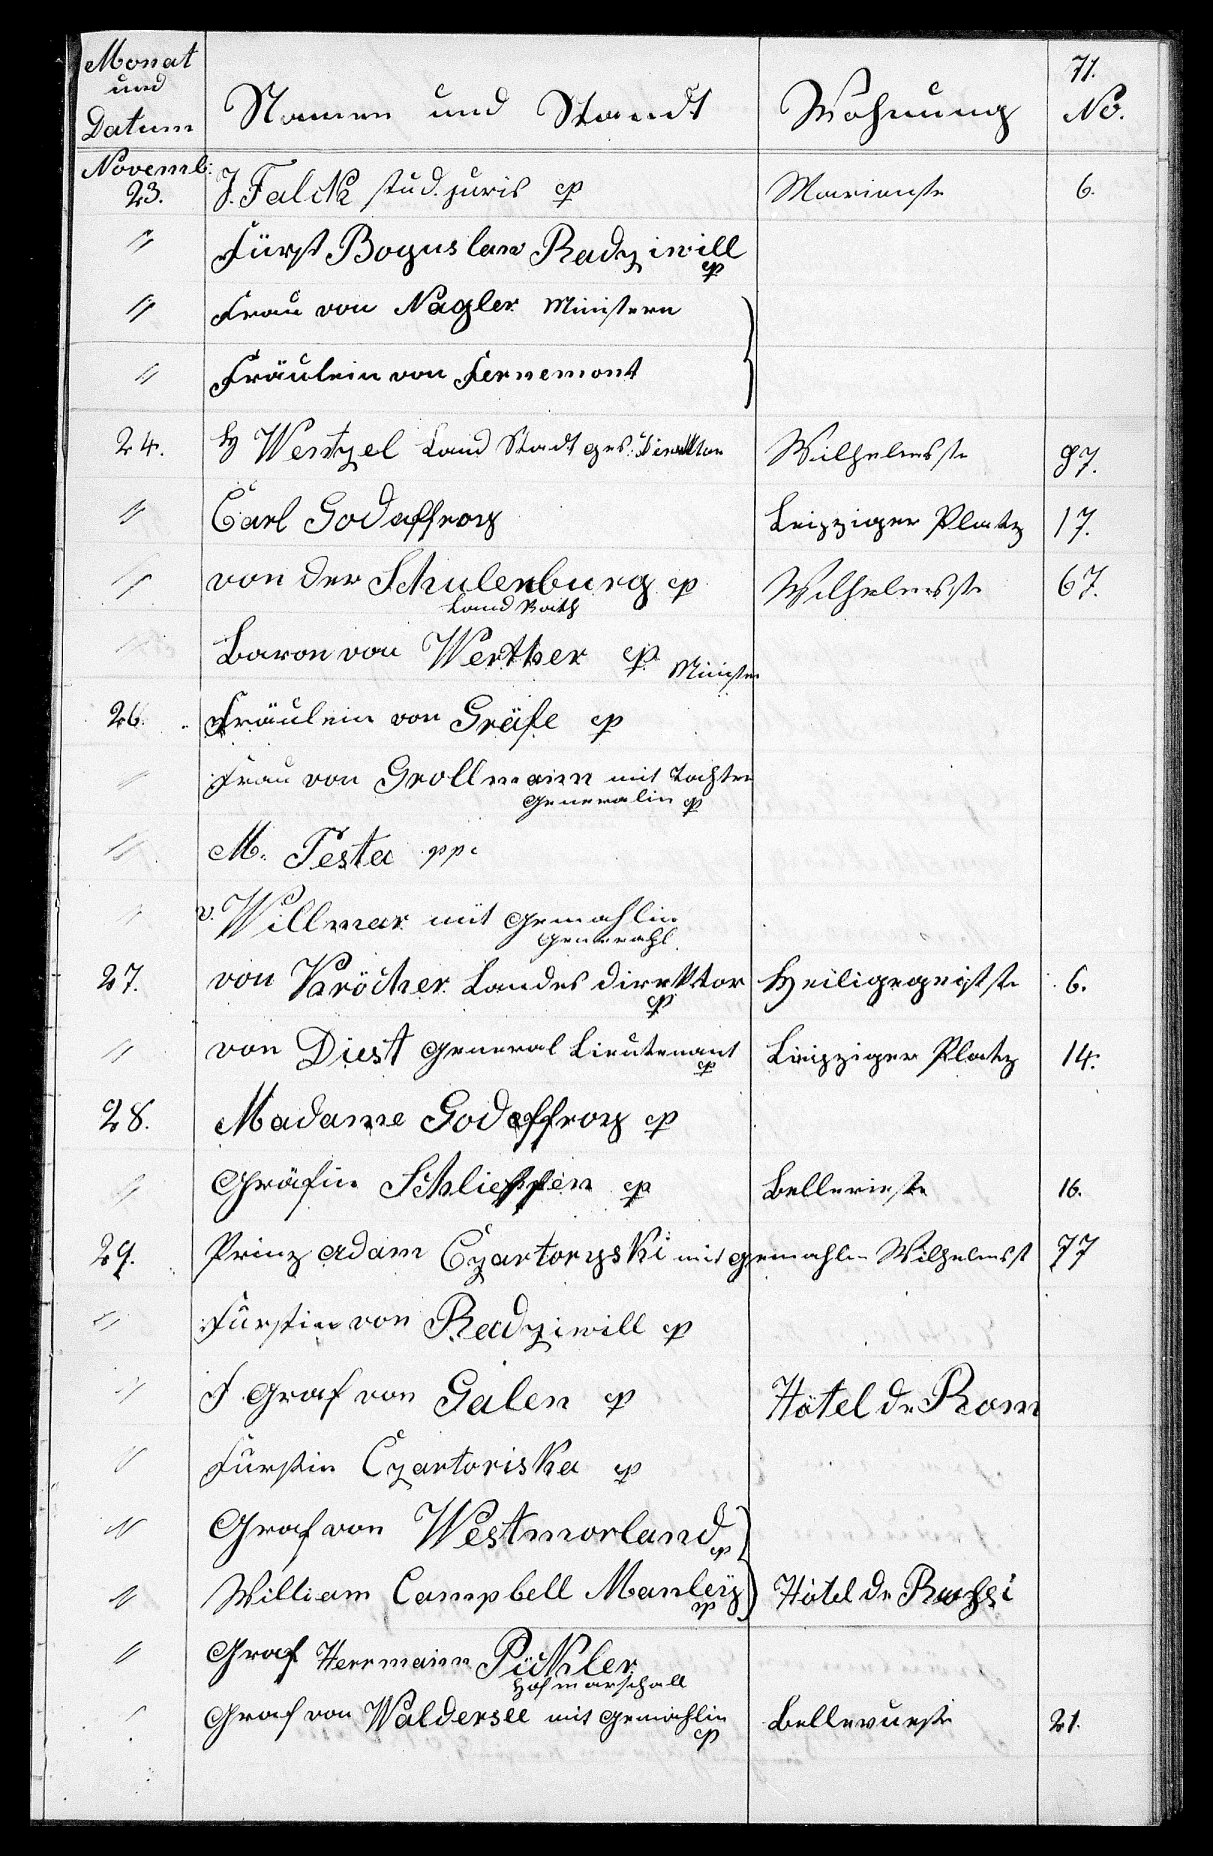 71.
Monat und Datum Namen und Standt Wohnung No.
Novemb:
23. J. Falck stud. juris cp Marienstr 6.
" Fürst Boguslaw Radziwill cp
" Frau von Nagler Ministern
" Fräulein von Fernemont
24. H Wentzel Land Stadt ges. Direktor Wilhelmsstr 97.
" Carl Godeffroy Leipziger Platz 17.
" von der Schulenburg cp Wilhelmsstr 67.
Land Rath
" Baron von Werther cp Minister
26. Fräulein von Gräfe cp
" Frau von Grollmann mit Tochter
Generalin cp
" M. Testa ppc
" v. Willmar mit Gemahlin
27. von Kröcher Landes Direktor cp Heiligegeiststr 6.
" von Diest General Lieutenant cp Leipziger Platz 14.
28. Madame Godeffroy cp
" Gräfin Schlieffen cp Bellevuestr 16.
29. Prinz Adam Czartoryski mit Gemahlin Wilhelmsst 77
" Fürstin von Radziwill cp
" F Graf von Galen cp Hôtel de Rom
" Fürstin Czartoriska cp
" Graf von Westmorland cp
" William Campbell Manley cp Hôtel de Russi
" Graf Herrmann Pückler
Hofmarschall
" Graf von Waldersee mit Gemahlin cp Bellevuestr 21.